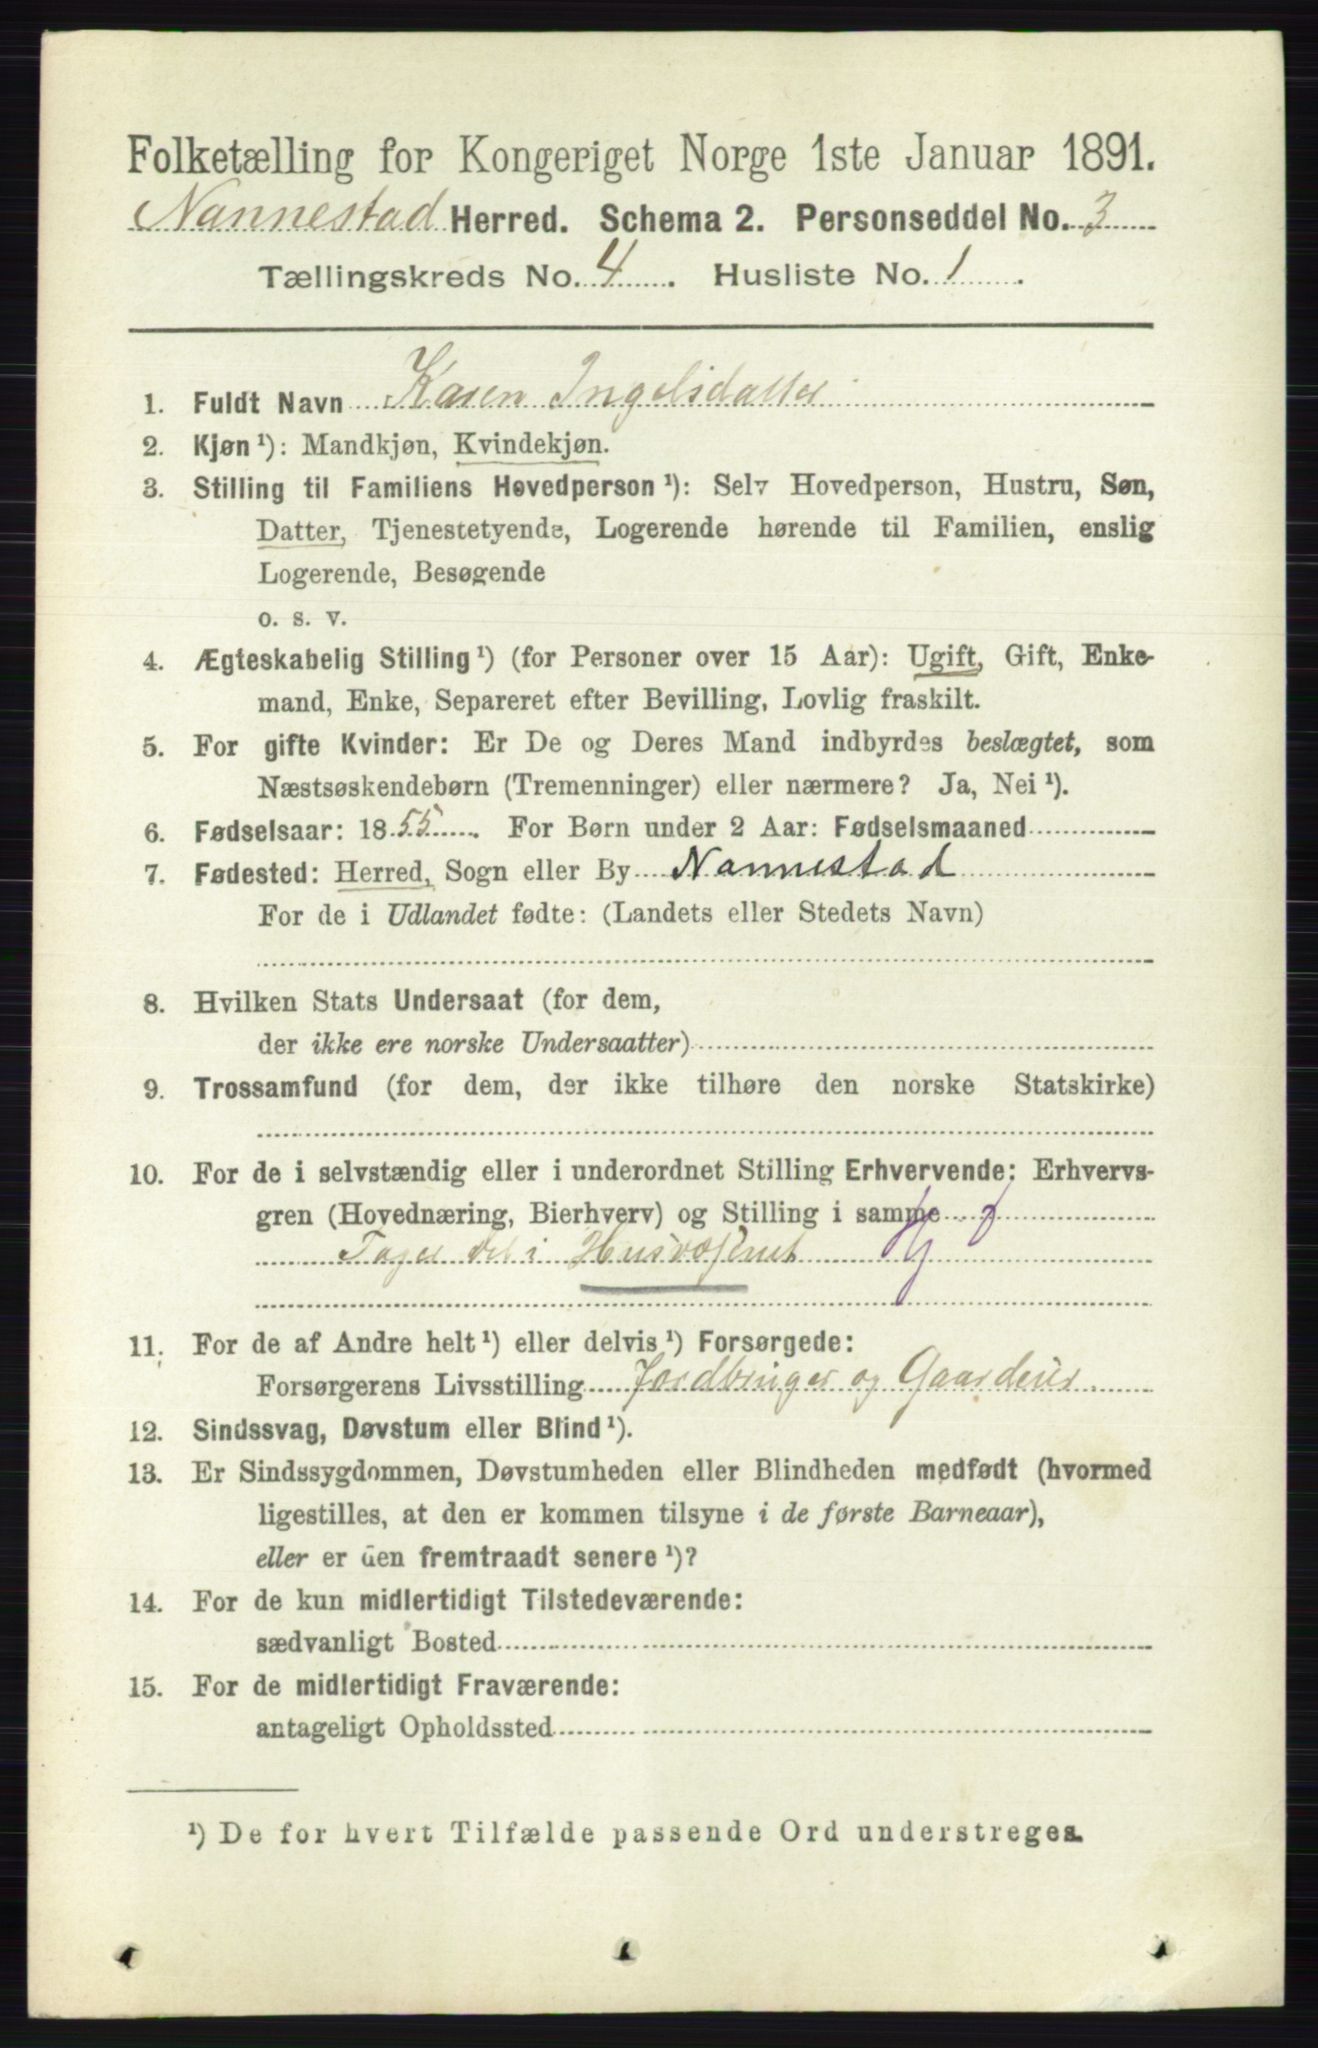 Folketælling for Kongeriget Norge 1ste Januar 1891.
Nannestad Herred. Schema 2. Personseddel No. 3
Tællingskreds No. 4. Husliste No. 1.
1. Fuldt Navn Karen Ingelsdatter
2. Kjøn ¹): Mandkjøn, Kvindekjøn.
3. Stilling til Familiens Hovedperson ¹): Selv Hovedperson, Hustru, Søn,
Datter, Tjenestetyende, Logerende hørende til Familien, enslig
Logerende, Besøgende
o. s. v.
4. Ægteskabelig Stilling ¹) (for Personer over 15 Aar): Ugift, Gift, Enke-
mand, Enke, Separeret efter Bevilling, Lovlig fraskilt.
5. For gifte Kvinder: Er De og Deres Mand indbyrdes beslægtet, som
Næstsøskendebørn (Tremenninger) eller nærmere? Ja, Nei ¹).
6. Fødselsaar: 1855. For Børn under 2 Aar: Fødselsmaaned
7. Fødested: Herred, Sogn eller By Nannestad
For de i Udlandet fødte: (Landets eller Stedets Navn)
8. Hvilken Stats Undersaat (for dem,
der ikke ere norske Undersaatter)
9. Trossamfund (for dem, der ikke tilhøre den norske Statskirke)
10. For de i selvstændig eller i underordnet Stilling Erhvervende: Erhvervs-
gren (Hovednæring, Bierhverv) og Stilling i samme
Tager del i Husvæsenet
11. For de af Andre helt ¹) eller delvis ¹) Forsørgede:
Forsørgerens Livsstilling Jordbruger og Gaardeier.
12. Sindssvag, Døvstum eller Blind ¹).
13. Er Sindssygdommen, Døvstumheden eller Blindheden medfødt (hvormed
ligestilles, at den er kommen tilsyne i de første Barneaar),
eller er den fremtraadt senere ¹)?
14. For de kun midlertidigt Tilstedeværende:
sædvanligt Bosted
15. For de midlertidigt Fraværende:
antageligt Opholdssted
¹) De for hvert Tilfælde passende Ord understreges.